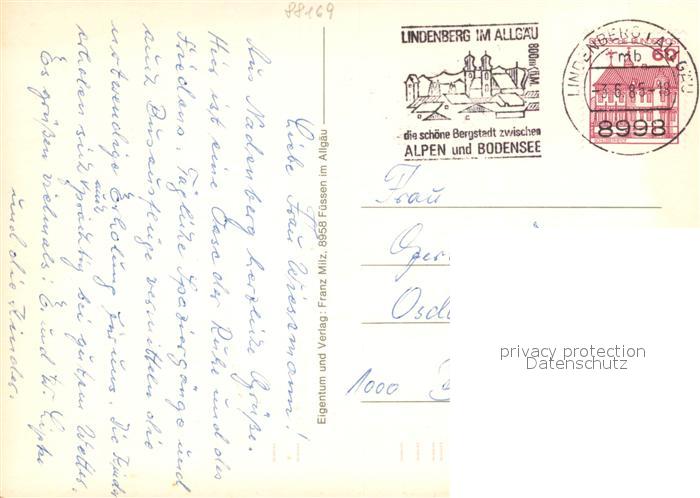 88169
LINDENBERG IM ALLGÄU
800 m ü.M.
die schöne Bergstadt zwischen
ALPEN und BODENSEE
LINDENBERG I ALLGÄU
mb
-3.6.85-18
8998
60
Frau
1000
privacy protection
Datenschutz
Eigentum und Verlag: Franz Milz, 8958 Füssen im Allgäu
Liebe Frau Wiesmann!
Aus Nadenberg herzliche Grüße.
Hier ist eine Oase der Ruhe und des
Friedens. Tägliche Spaziergänge und
auch Busausflüge vermitteln die
notwendige Erholung für uns. Die
auch
erholen sich prächtig bei gutem Wetter.
Es grüßen vielmals: E. und W.
und die Kinder.